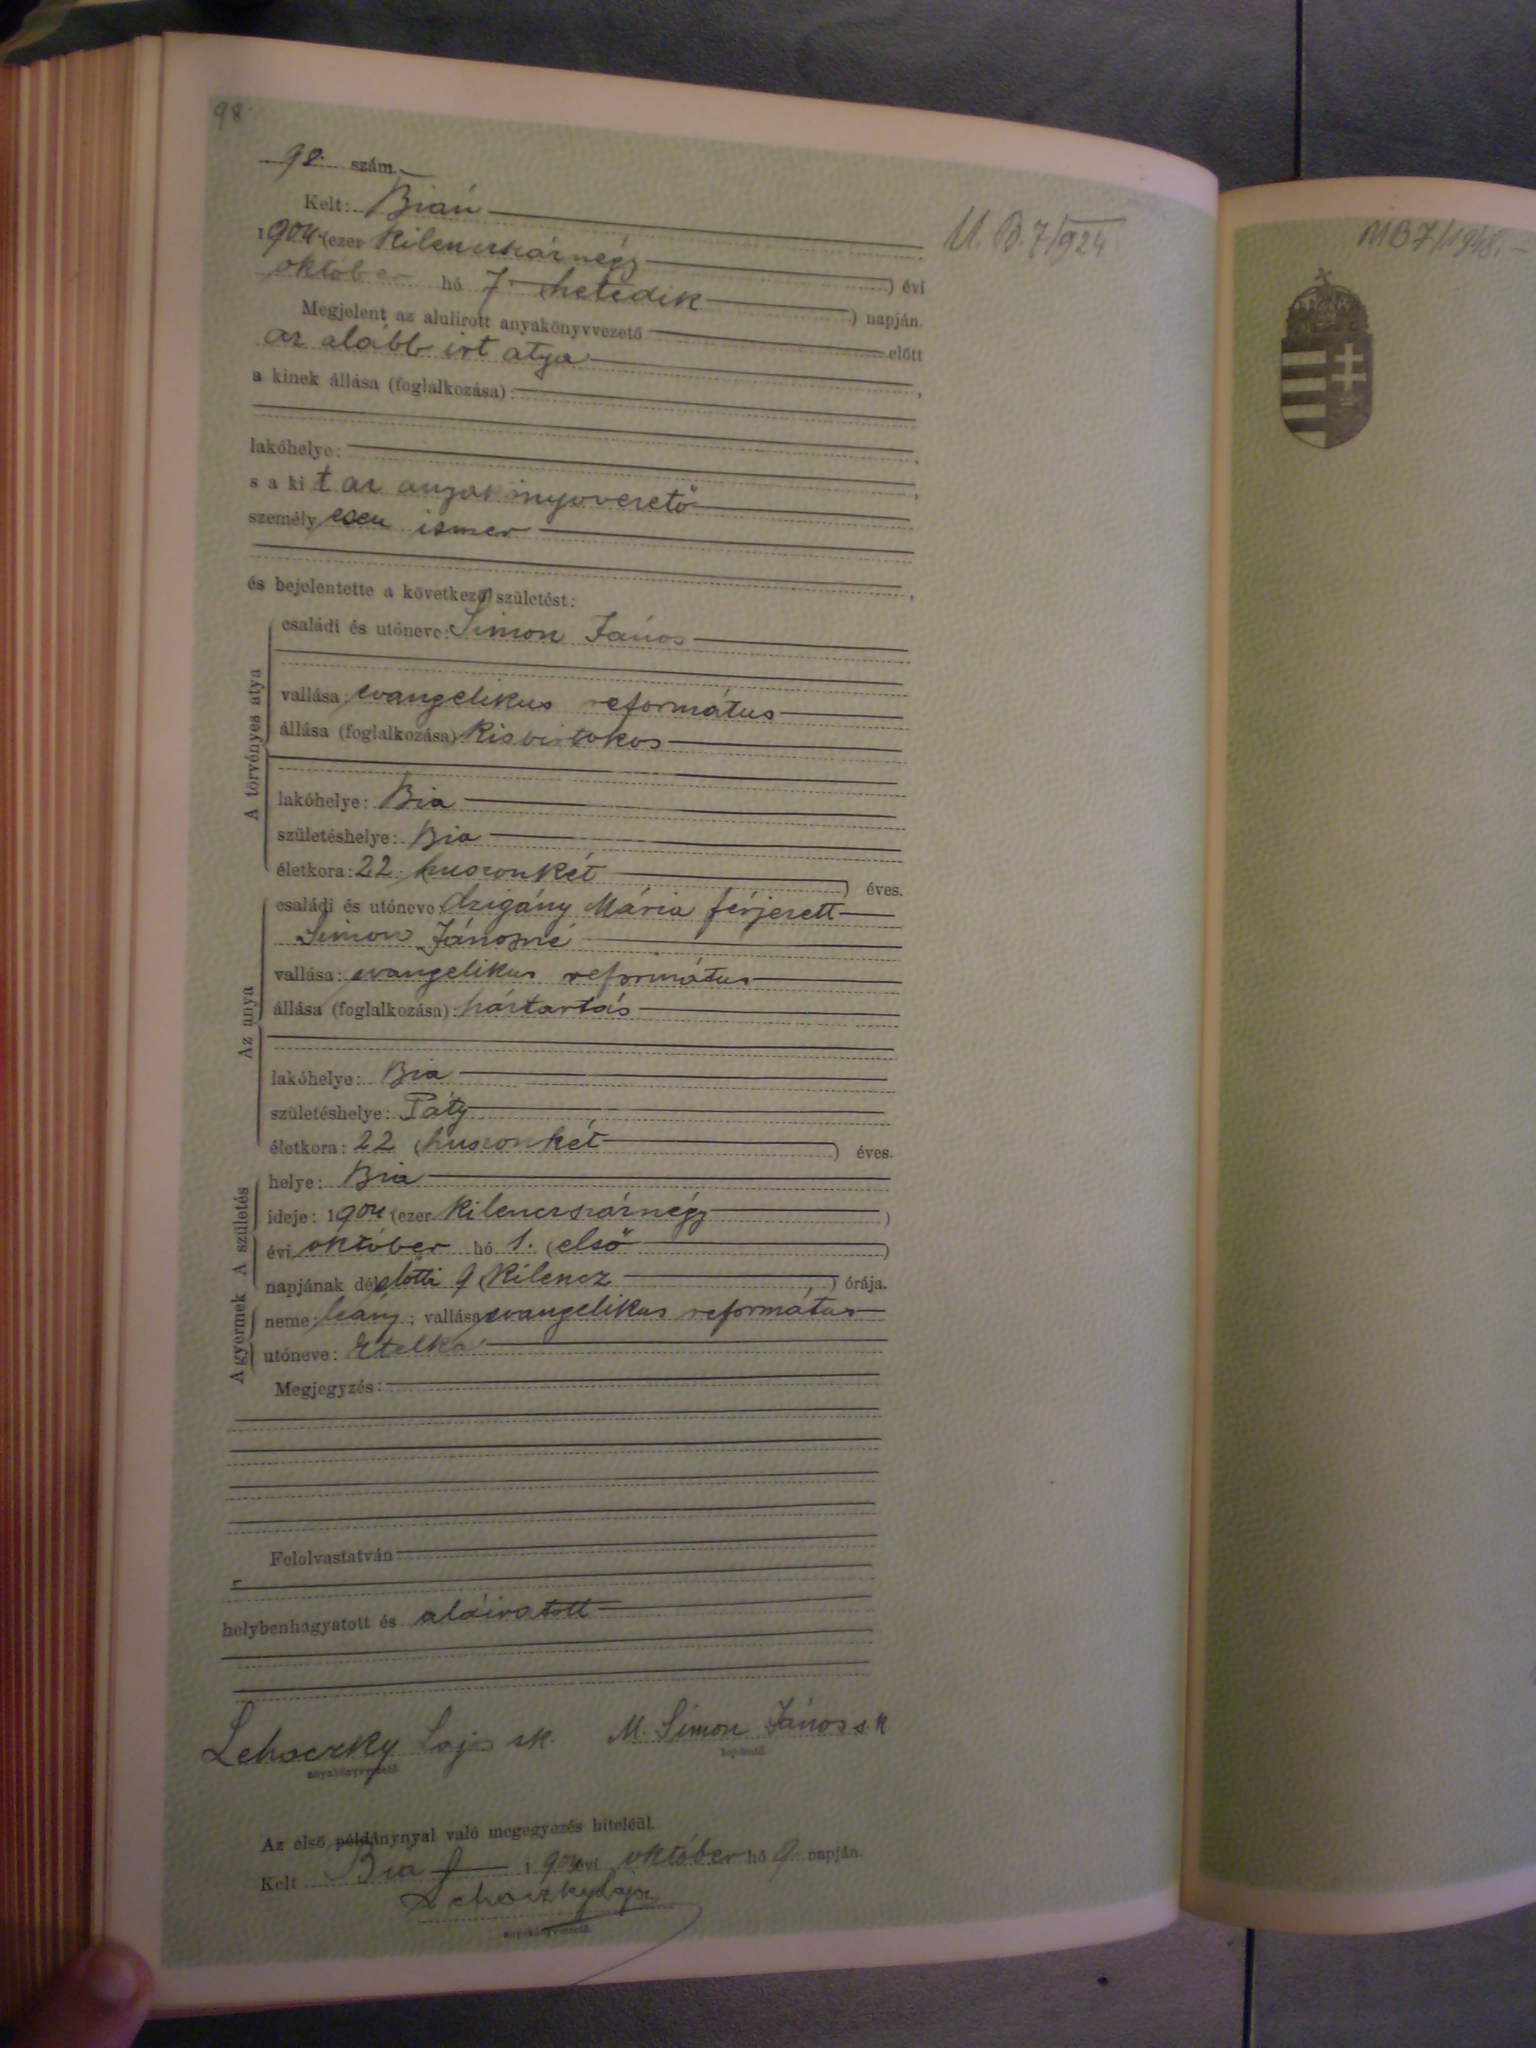 98
98. szám.
Kelt: Bián
1904. (ezer kilenczszáznégy ) évi
október hó 7 (hetedik ) napján.
Megjelent az alulirott anyakönyvvezető előtt
az alább irt atya
a kinek állása (foglalkozása):
lakóhelye:
s a kit az anyakönyvvezető
személyesen ismer
és bejelentette a következő születést:
A törvényes atya
családi és utóneve: Simon János
vallása: evangelikus református
állása (foglalkozása): kisbirtokos
lakóhelye: Bia
születéshelye: Bia
életkora: 22 (huszonkét ) éves.
Az anya
családi és utóneve Czigány Mária férjezett
Simon Jánosné
vallása: evangelikus református
állása (foglalkozása): háztartás
lakóhelye: Bia
születéshelye: Páty
életkora: 22 (huszonkét ) éves.
A születés
helye: Bia
ideje: 1904 (ezer kilenczszáznégy )
évi október hó 1. (első )
napjának délelőtti 9 (kilencz ) órája.
A gyermek
neme: leány; vallása evangelikus református
utóneve: Etelka
Megjegyzés:
Felolvastatván
helybenhagyatott és aláiratott
Lehoczky Lajos sk. M. Simon János sk
anyakönyvvezető. bejelentő.
Az első példánynyal való megegyezés hiteléül.
Kelt Bia 1904 évi október hó 9 napján.
Lehoczky Lajos
anyakönyvvezető.
U. B. 7/924
MB 7/1948.